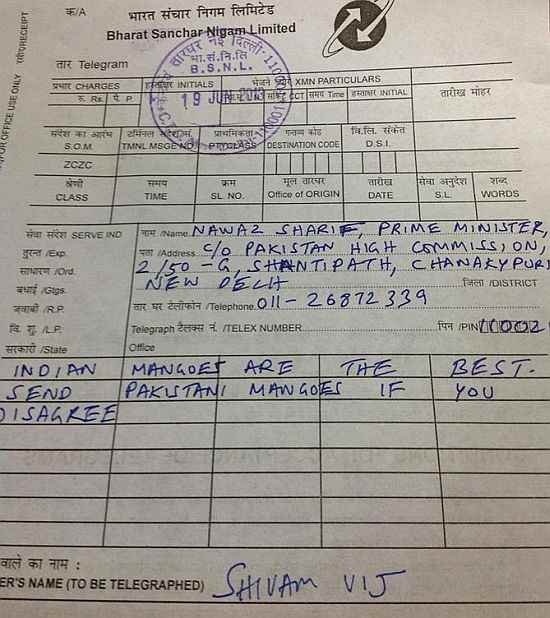 क/A
भारत संचार निगम लिमिटेड
Bharat Sanchar Nigam Limited
तार Telegram
प्रभार CHARGES हस्ताक्षर INITIALS XMN PARTICULARS तारीख मोहर
रु. Rs. पै. P समय Time हस्ताक्षर INITIAL
तारघर नई दिल्ली-110001
भा.सं.नि.लि
B.S.N.L.
19 JUN 2013
संदेश का आरंभ टर्मिनल प्राथमिकता गन्तव्य कोड वि.लि. संकेत
S.O.M. TMNL MSGE NO. PTY/CLASS DESTINATION CODE D.S.I.
ZCZC
श्रेणी समय क्रम मूल तारघर तारीख सेवा अनुदेश शब्द
CLASS TIME SL. NO. Office of ORIGIN DATE S.L. WORDS
सेवा संदेश SERVE IND नाम /Name NAWAZ SHARIF, PRIME MINISTER,
तुरन्त /Exp. पता /Address C/O PAKISTAN HIGH COMMISSION,
साधारण /Ord. 2/50-G, SHANTIPATH, CHANAKYPURI
बधाई /Gtgs. NEW DELHI जिला /DISTRICT
जवाबी /R.P. तार घर टेलीफोन /Telephone 011-26872339
वि. शु. /L.P. Telegraph टैलक्स नं. /TELEX NUMBER पिन /PIN 11002
सरकारी /State Office
INDIAN MANGOES ARE THE BEST.
SEND PAKISTANI MANGOES IF YOU
DISAGREE
वाले का नाम :
ER'S NAME (TO BE TELEGRAPHED) SHIVAM VIJ
FOR OFFICE USE ONLY
RECEIPT